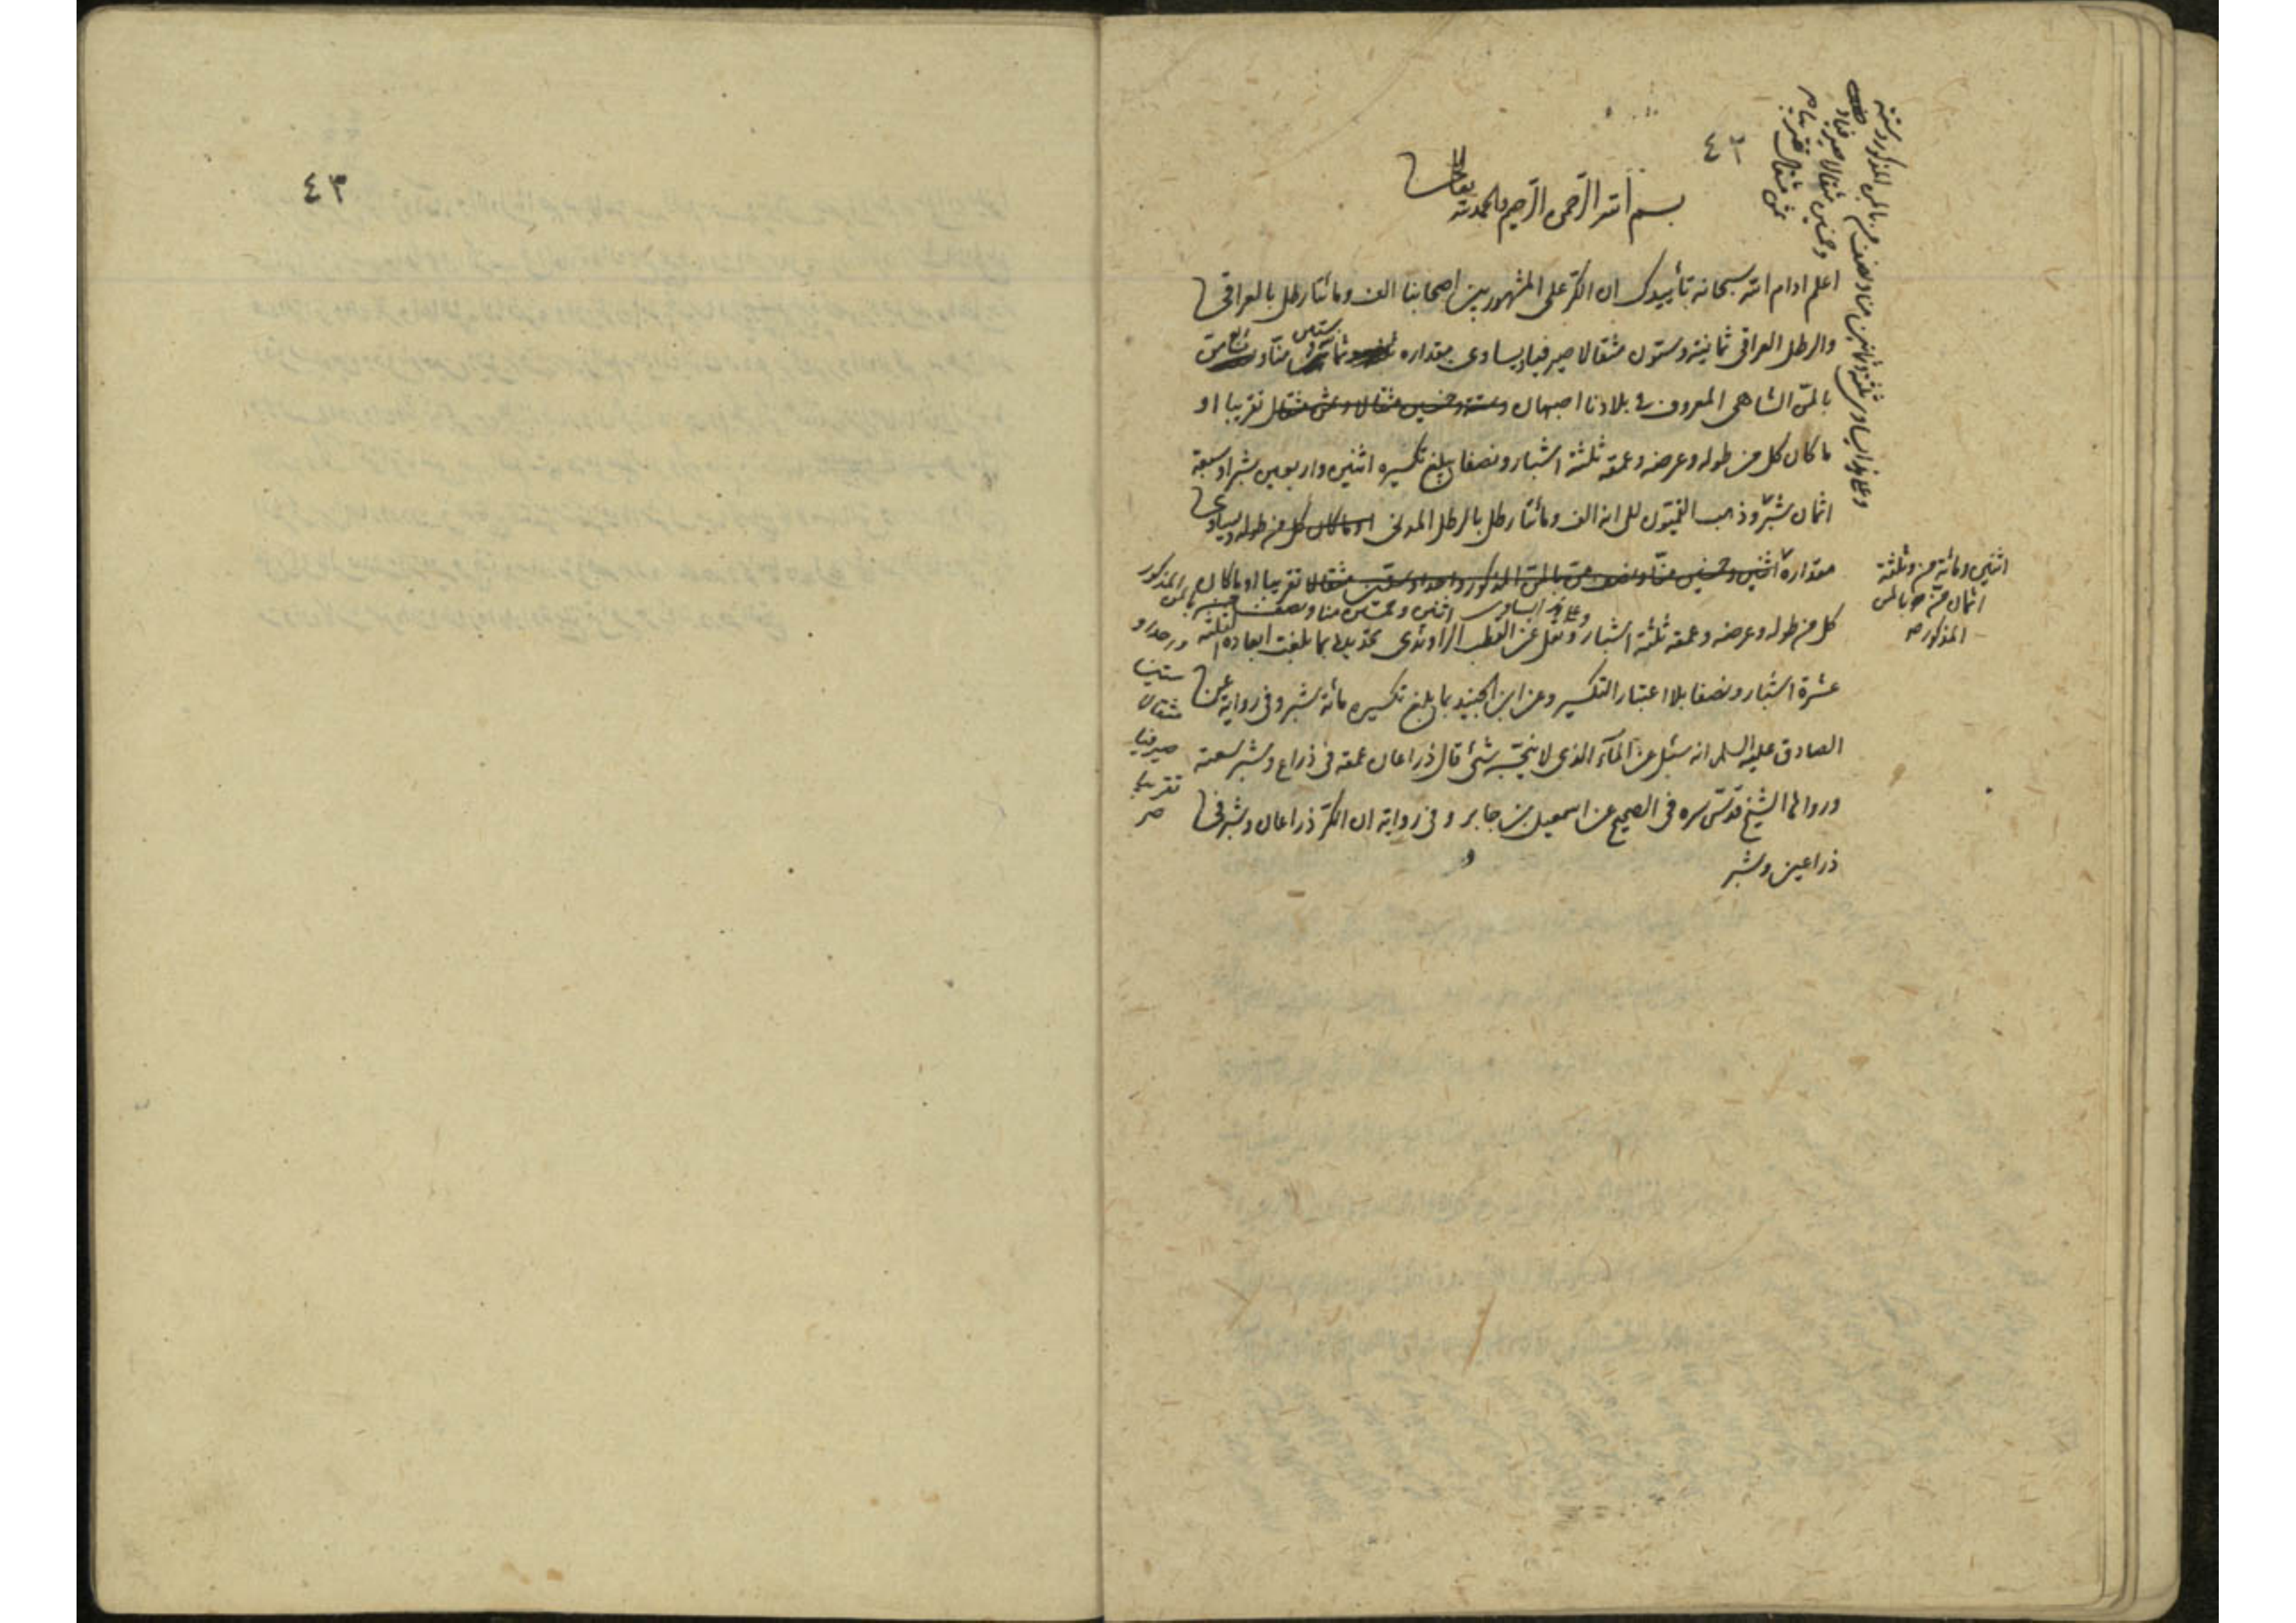 ٤٢
بسم الله الرحمن الرحيم والحمد لله تعالى
اعلم ادام الله سبحانه تأييدك ان الكر على المشهور بين اصحابنا الف ومائتا رطل بالعراقي
والرطل العراقي ثمانية وستون مثقالا صيرفيا يساوي مقداره منا و
بالمن الشاهي المعروف في بلادنا اصبهان وستة وخمسين مثقالا وثمن مثقال تقريبا او
ما كان كل من طوله وعرضه وعمقه ثلثة اشبار ونصفا يبلغ تكسيره اثنين واربعين شبرا وسبعة
اثمان شبر وذهب القميون الى انه الف ومائتا رطل بالرطل المدني او ما كان كل من طوله ويساوي
مقداره اثنين وخمسين منا ونصف من بالمن المذكور واحدا وستين مثقالا تقريبا او ما كان
وعلى هذا يساوي اثنين وخمسين منا ونصف بالمن المذكور
كل من طوله وعرضه وعمقه ثلثة اشبار ونقل عن القطب الراوندي تحديده بما بلغت ابعاده الثلثة
عشرة اشبار ونصفا بلا اعتبار التكسير وعن ابن الجنيد بما بلغ تكسيره مائة شبر وفي رواية عن
الصادق عليه السلم انه سئل عن المآء الذي لا ينجسه شئ قال ذراعان عمقه في ذراع وشبر سعته
ورواها الشيخ قدس سره في الصحيح عن اسمعيل بن جابر وفي رواية ان الكر ذراعان وشبر في
ذراعين وشبر
وعلى هذا يساوي ثلثة وثمانين منا ونصف من بالمن المذكور وستة
وخمسين مثقالا صيرفيا و
ثمن مثقال تقريبا
اثنين ومائة من وثلثة
اثمان من بالمن
المذكور
واحدا و
ستين
مثقالا
صيرفيا
تقريبا
٤٣